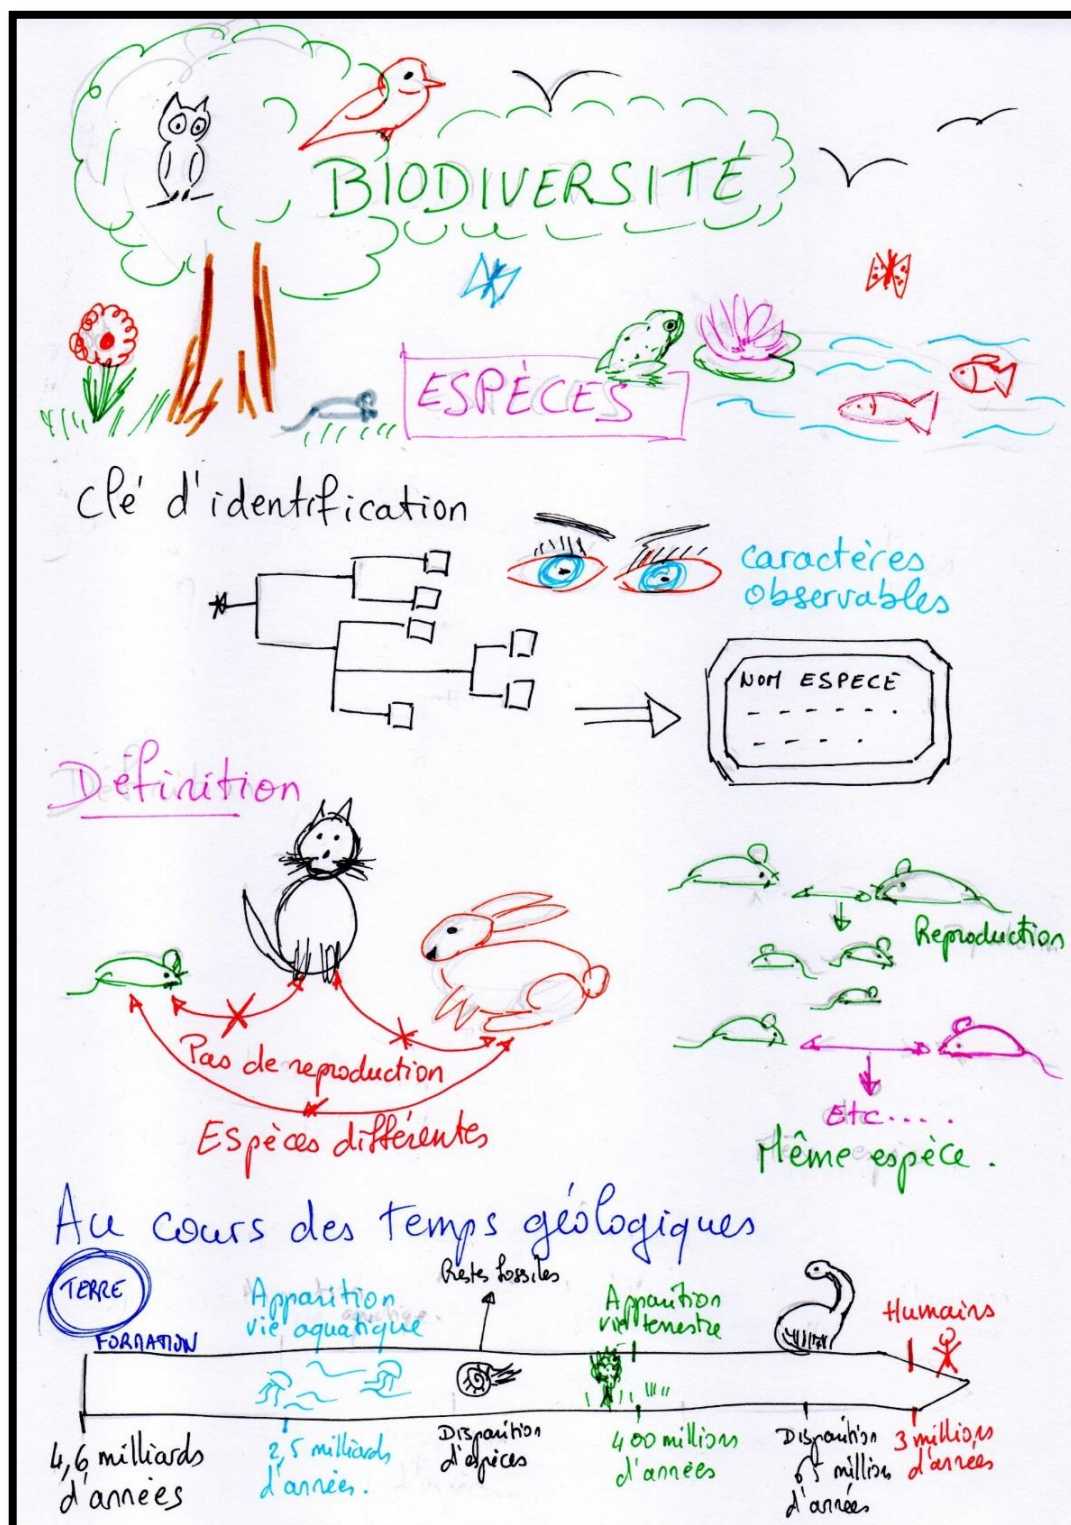 BIODIVERSITÉ
ESPÈCES
Clé d'identification
caractères
observables
NOM ESPECE
Définition
Reproduction
Pas de reproduction
Espèces différentes
Etc.....
Même espèce.
Au cours des temps géologiques
TERRE
FORMATION
Apparition
vie aquatique
Restes fossiles
Apparition
vie terrestre
Humains
4,6 milliards
d'années
2,5 milliards
d'années.
Disparition
d'espèces
400 millions
d'années
Disparition
65 millions
d'années
3 millions
d'années